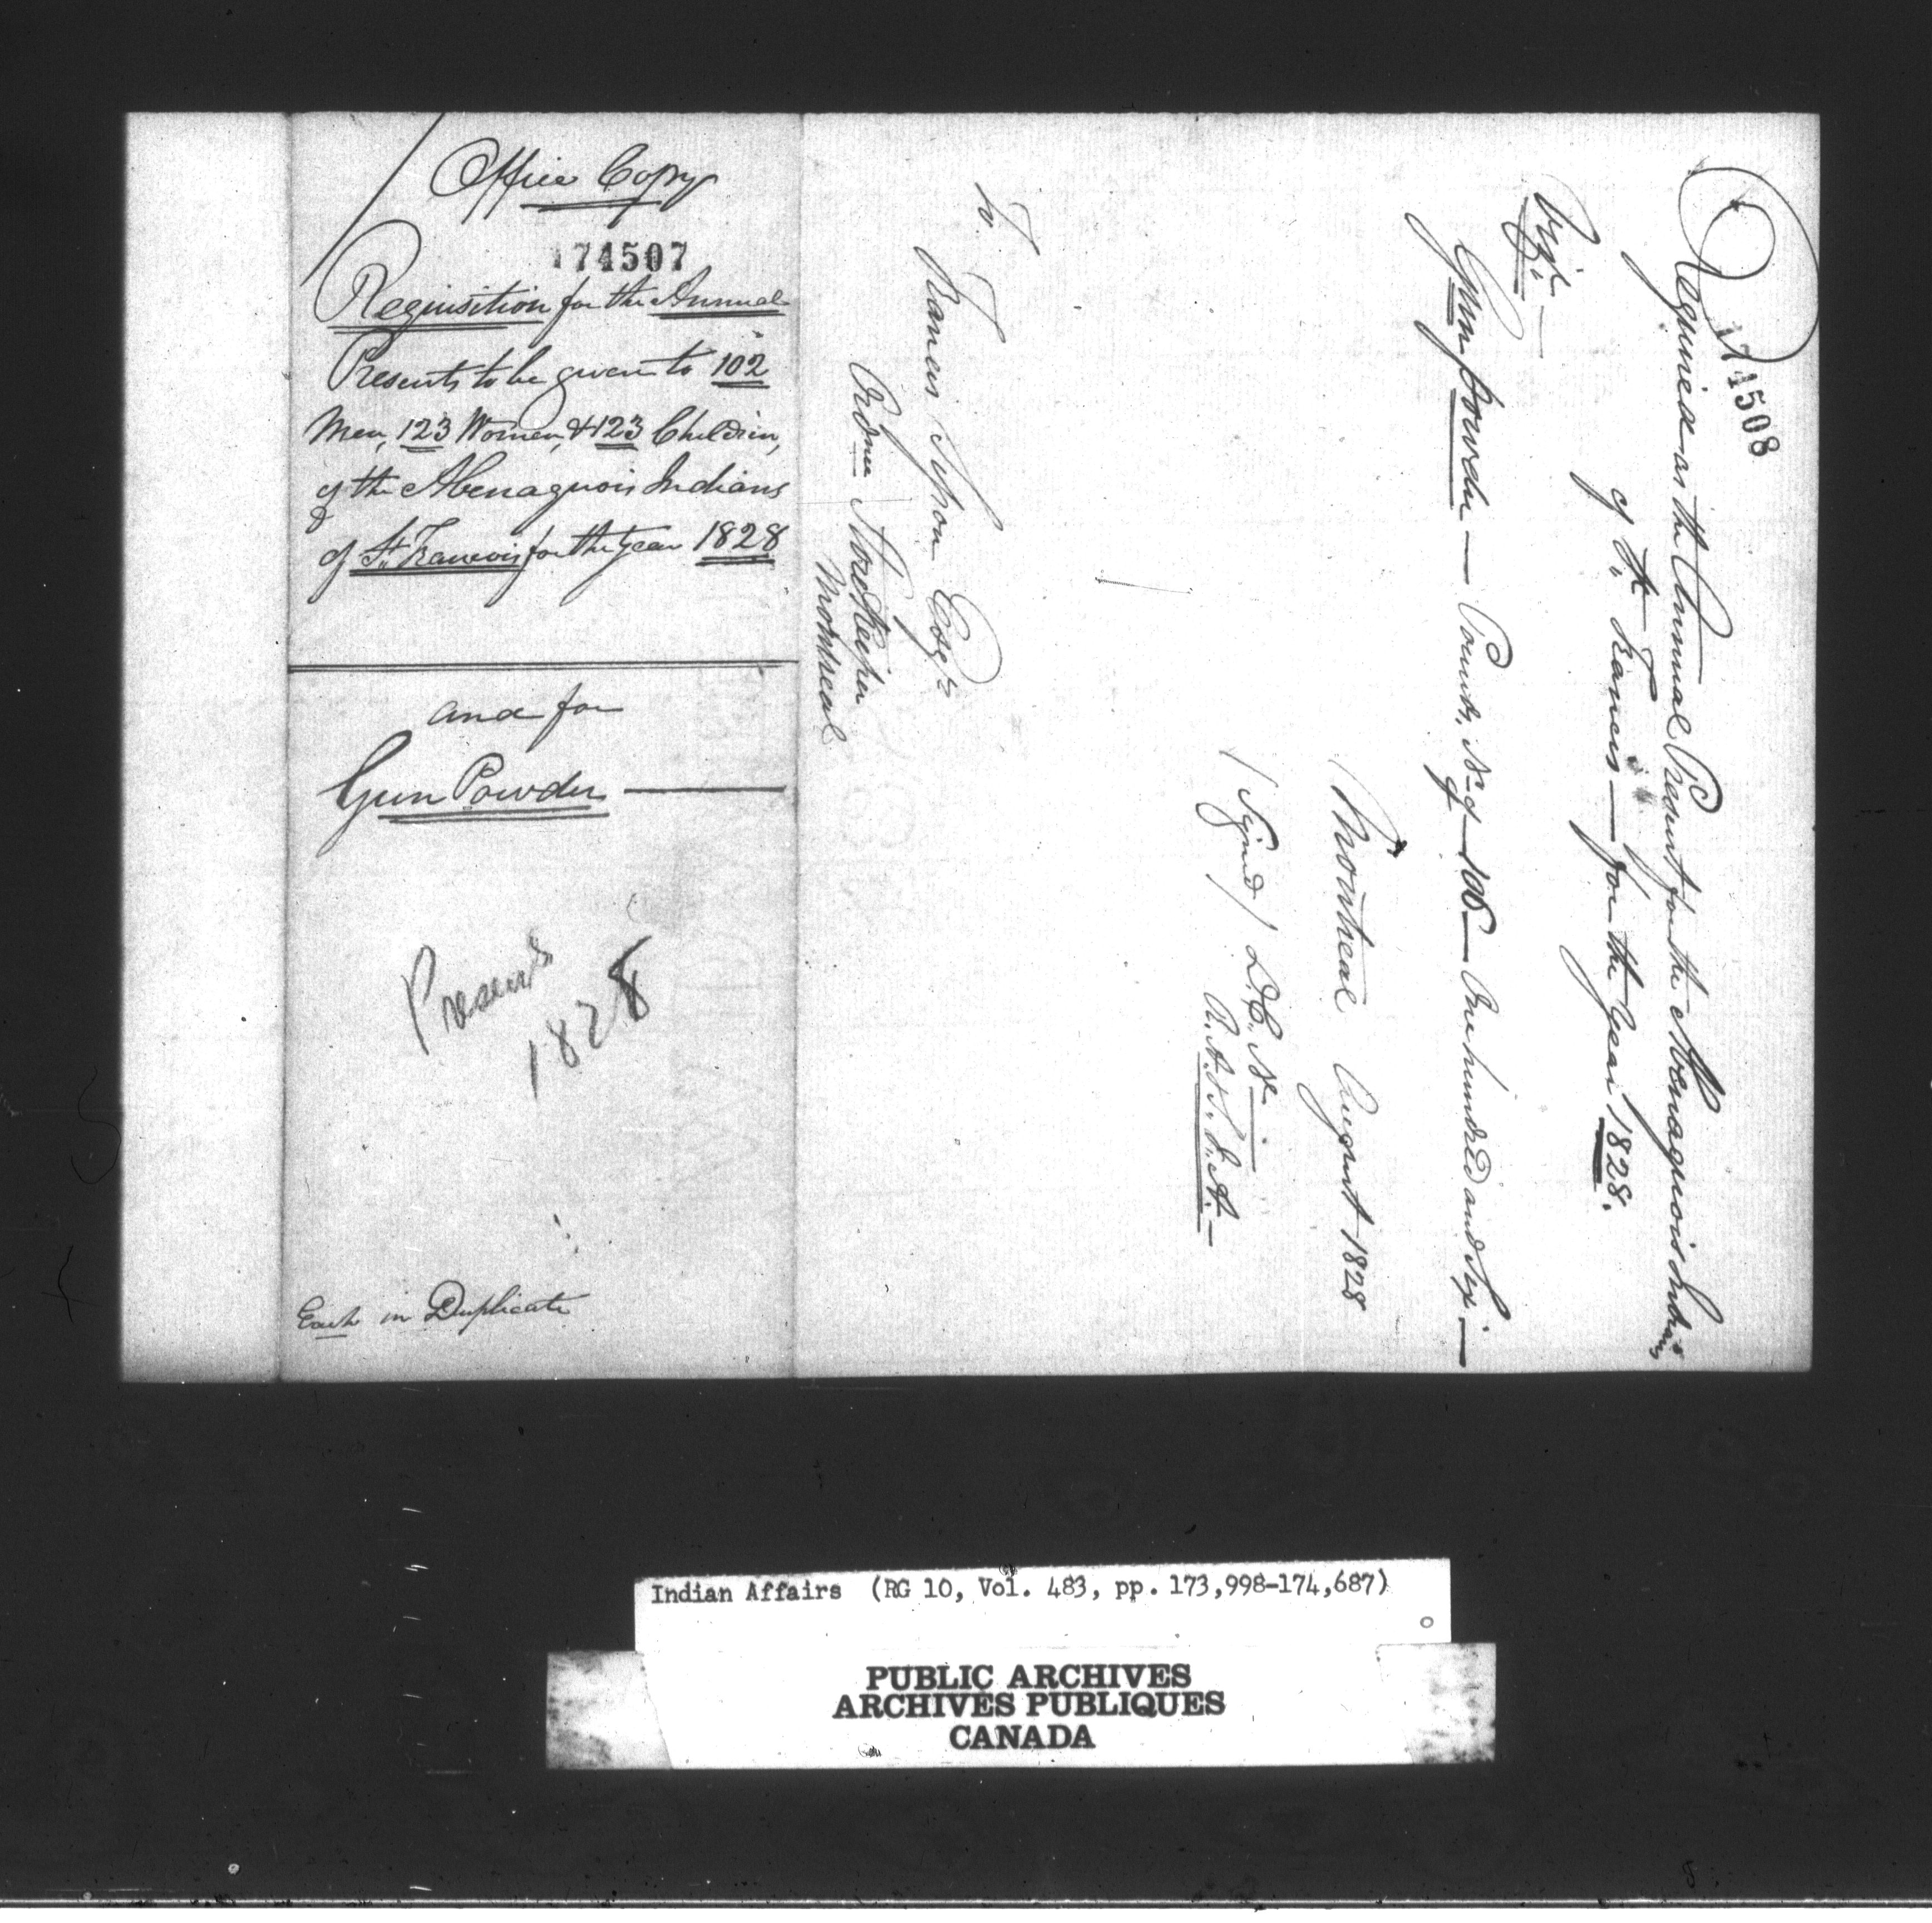 Office Copy
174507
Requisition for the Annual
Presents to be given to 102
Men, 123 Women, & 123 Children,
of the Abenaquois Indians
of St. Francois for the year 1828
and for
Gun Powder
Presents
1828
Each in Duplicate
174508
Required as the Annual Present for the Abenaquois Indians
of St. Francis — for the Year 1828.
Viz.—
Gun Powder — Pounds, No. of — 106 — One hundred and Six —
Montreal August 1828
(Signed) D. C. N.
R. A. & S. I. A. —
To
Francis Esqr.
Ordnce Storekeeper
Montreal
Indian Affairs (RG 10, Vol. 483, pp. 173,998-174,687)
PUBLIC ARCHIVES
ARCHIVES PUBLIQUES
CANADA